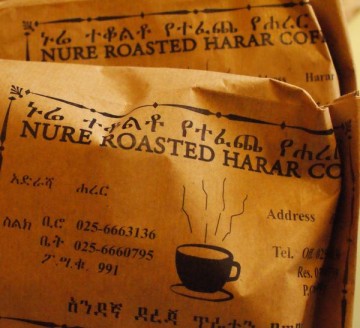 ኑሬ ተቆልቶ የተፈጨ የሐረር
NURE ROASTED HARAR COF
Harar
ኑሬ ተቆልቶ የተፈጨ የሐረር
NURE ROASTED HARAR CO
አድራሻ ሐረር
Address
ስልክ ቢሮ 025-6663136
Tel. Off
ቤት 025-6660795
Res.
ፖ.ሣ.ቁ. 991
አንደኛ ደረጃ